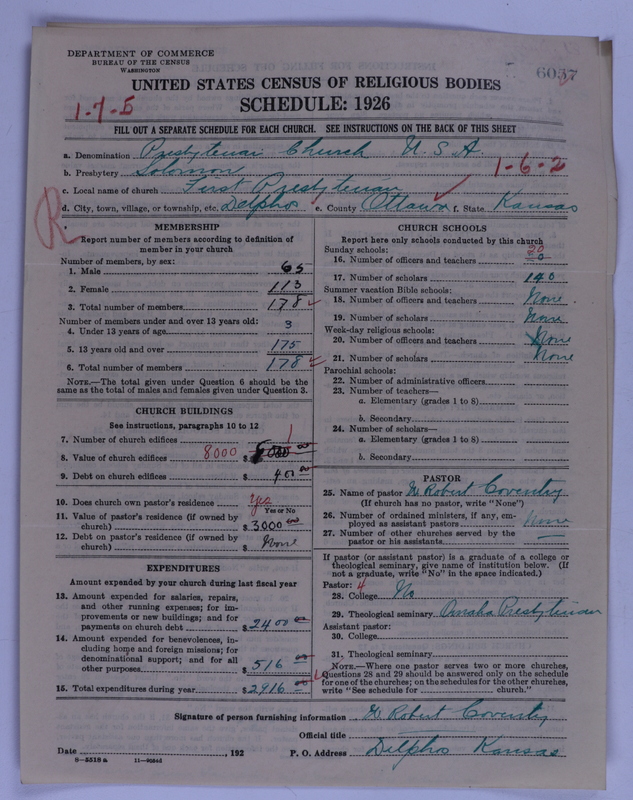 DEPARTMENT OF COMMERCE
BUREAU OF THE CENSUS
WASHINGTON
6037
UNITED STATES CENSUS OF RELIGIOUS BODIES
SCHEDULE: 1926
1-7-5
FILL OUT A SEPARATE SCHEDULE FOR EACH CHURCH. SEE INSTRUCTIONS ON THE BACK OF THIS SHEET
a. Denomination Presbyterian Church U.S.A.
b. Presbytery Solomon 1-6-2
c. Local name of church First Presbyterian
d. City, town, village, or township, etc. Delphos e. County Ottawa f. State Kansas
R
MEMBERSHIP
Report number of members according to definition of
member in your church
Number of members, by sex:
1. Male 65
2. Female 113
3. Total number of members 178
Number of members under and over 13 years old:
4. Under 13 years of age 3
5. 13 years old and over 175
6. Total number of members 178
NOTE.—The total given under Question 6 should be the
same as the total of males and females given under Question 3.
CHURCH BUILDINGS
See instructions, paragraphs 10 to 12
7. Number of church edifices 1
8. Value of church edifices 8000 $ 8000 00
9. Debt on church edifices $ 400 00
10. Does church own pastor's residence Yes
Yes or No
11. Value of pastor's residence (if owned by
church) $ 3000 00
12. Debt on pastor's residence (if owned by
church) $ None
EXPENDITURES
Amount expended by your church during last fiscal year
13. Amount expended for salaries, repairs,
and other running expenses; for im-
provements or new buildings; and for
payments on church debt $ 2400 00
14. Amount expended for benevolences, in-
cluding home and foreign missions; for
denominational support; and for all
other purposes $ 516 00
15. Total expenditures during year $ 2916 00
CHURCH SCHOOLS
Report here only schools conducted by this church
Sunday schools: 20
16. Number of officers and teachers
17. Number of scholars 140
Summer vacation Bible schools:
18. Number of officers and teachers None
19. Number of scholars None
Week-day religious schools:
20. Number of officers and teachers None
21. Number of scholars None
Parochial schools:
22. Number of administrative officers
23. Number of teachers—
a. Elementary (grades 1 to 8)
b. Secondary
24. Number of scholars—
a. Elementary (grades 1 to 8)
b. Secondary
PASTOR
25. Name of pastor Robert Coventry
(If church has no pastor, write "None")
26. Number of ordained ministers, if any, em-
ployed as assistant pastors None
27. Number of other churches served by the
pastor or his assistants —
If pastor (or assistant pastor) is a graduate of a college or
theological seminary, give name of institution below. (If
not a graduate, write "No" in the space indicated.)
Pastor: 4
28. College No
29. Theological seminary Omaha Presbyterian
Assistant pastor:
30. College
31. Theological seminary
NOTE.—Where one pastor serves two or more churches,
Questions 28 and 29 should be answered only on the schedule
for one of the churches; on the schedules for the other churches,
write "See schedule for church."
Signature of person furnishing information Robert Coventry
Official title
Date , 192 P. O. Address Delphos Kansas
8—5518 a